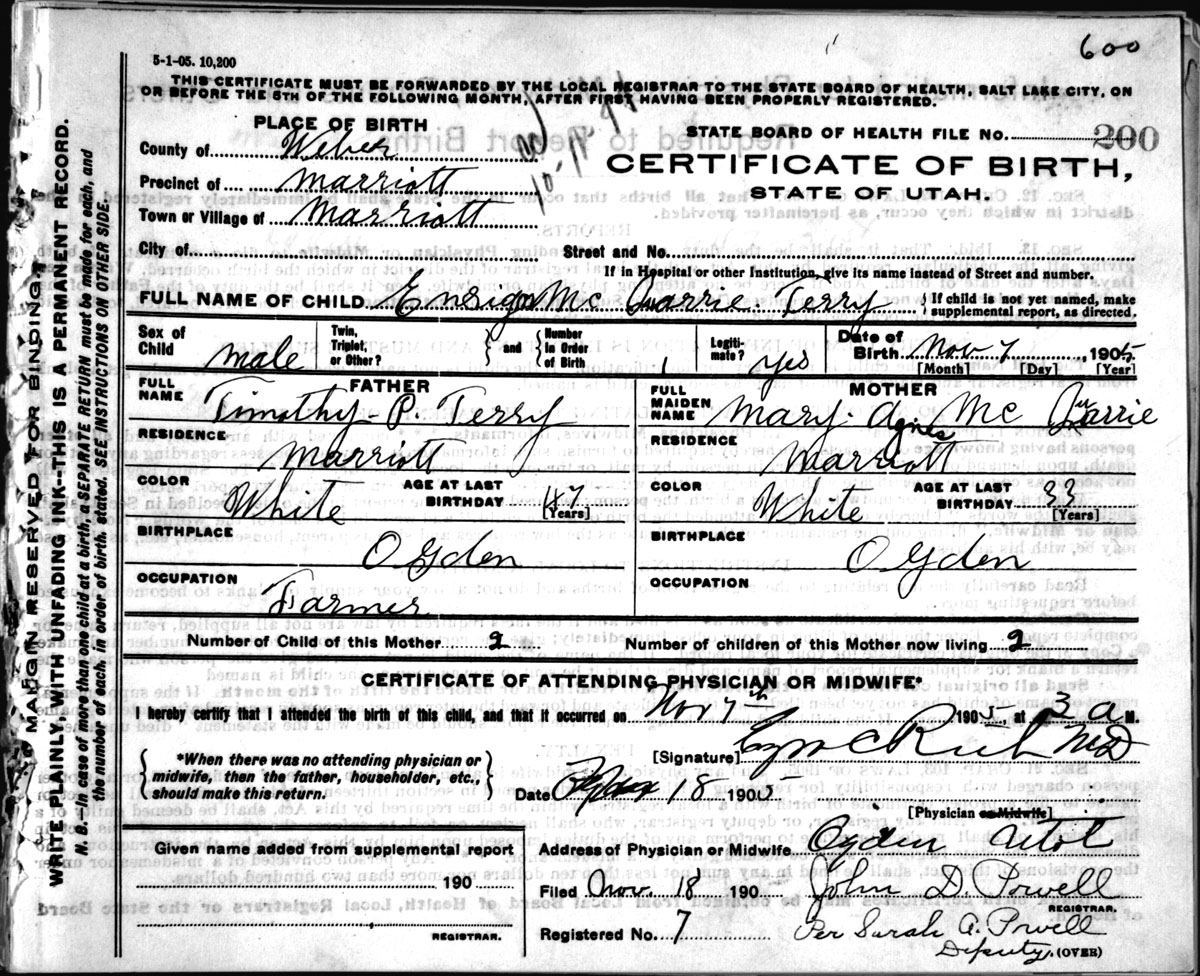 600
5-1-05. 10,200
THIS CERTIFICATE MUST BE FORWARDED BY THE LOCAL REGISTRAR TO THE STATE BOARD OF HEALTH, SALT LAKE CITY, ON
OR BEFORE THE 5TH OF THE FOLLOWING MONTH, AFTER FIRST HAVING BEEN PROPERLY REGISTERED.
PLACE OF BIRTH
STATE BOARD OF HEALTH FILE NO. 200
County of Weber
CERTIFICATE OF BIRTH,
Precinct of Marriott
STATE OF UTAH.
Town or Village of Marriott
City of Street and No.
If in Hospital or other Institution, give its name instead of Street and number.
FULL NAME OF CHILD Ensign Mc Quarrie Terry { If child is not yet named, make supplemental report, as directed.
Sex of Child male Twin, Triplet, or Other? } and { Number in Order of Birth Legitimate? yes Date of Birth Nov 7, 1905
[Month] [Day] [Year]
FATHER MOTHER
FULL NAME Timothy P. Terry FULL MAIDEN NAME Mary Agnes Mc Quarrie
RESIDENCE Marriott RESIDENCE Marriott
COLOR White AGE AT LAST BIRTHDAY 47 [Years] COLOR White AGE AT LAST BIRTHDAY 23 [Years]
BIRTHPLACE Ogden BIRTHPLACE Ogden
OCCUPATION Farmer OCCUPATION
Number of Child of this Mother 2 Number of children of this Mother now living 2
CERTIFICATE OF ATTENDING PHYSICIAN OR MIDWIFE*
I hereby certify that I attended the birth of this child, and that it occurred on Nov 7th 1905, at 3 a M.
{ *When there was no attending physician or midwife, then the father, householder, etc., should make this return. }
[Signature] Rich MD
Date 18 1905
[Physician or Midwife]
Given name added from supplemental report
Address of Physician or Midwife Ogden Utah
190
Filed Nov. 18 190 John D. Powell
REGISTRAR.
REGISTRAR.
Registered No. 7 Per Sarah A. Powell
Deputy. (OVER)
MARGIN RESERVED FOR BINDING.
WRITE PLAINLY, WITH UNFADING INK—THIS IS A PERMANENT RECORD.
N. B.—In case of more than one child at a birth, a SEPARATE RETURN must be made for each, and
the number of each, in order of birth, stated. SEE INSTRUCTIONS ON OTHER SIDE.